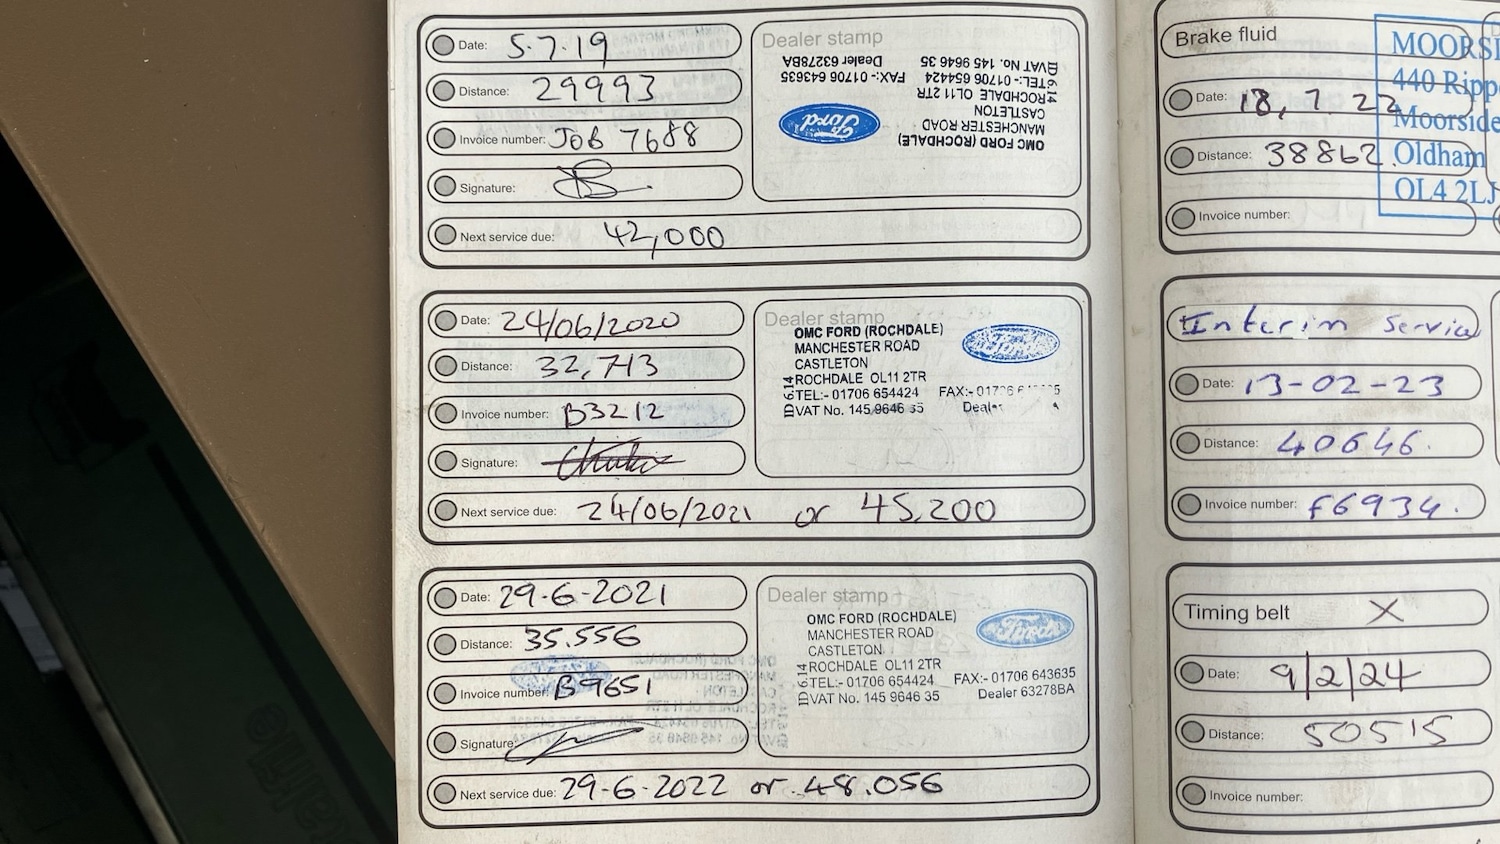 Date: 5.7.19
Distance: 29993
Invoice number: JOB 7688
Signature:
Next service due: 42,000
Dealer stamp
OMC FORD (ROCHDALE)
MANCHESTER ROAD
CASTLETON
ROCHDALE OL11 2TR
TEL:- 01706 654424 FAX:- 01706 643635
VAT No. 145 9646 35 Dealer 63278BA
Ford
Date: 24/06/2020
Distance: 32,713
Invoice number: B3212
Signature:
Next service due: 24/06/2021 or 45,200
Dealer stamp
OMC FORD (ROCHDALE)
MANCHESTER ROAD
CASTLETON
ROCHDALE OL11 2TR
TEL:- 01706 654424 FAX:-
VAT No. 145 9646 35
Ford
Date: 29-6-2021
Distance: 35.556
Invoice number: B9651
Signature:
Next service due: 29-6-2022 or 48.056
Dealer stamp
OMC FORD (ROCHDALE)
MANCHESTER ROAD
CASTLETON
ROCHDALE OL11 2TR
TEL:- 01706 654424 FAX:- 01706 643635
VAT No. 145 9646 35 Dealer 63278BA
Ford
Brake fluid
Date: 18, 7 22
Distance: 38862.
Invoice number:
MOORSI
440 Ripp
Moorside
Oldham
OL4 2LJ
Interim Service
Date: 13-02-23
Distance: 40646.
Invoice number: F6934.
Timing belt X
Date: 9/2/24
Distance: 50515
Invoice number: